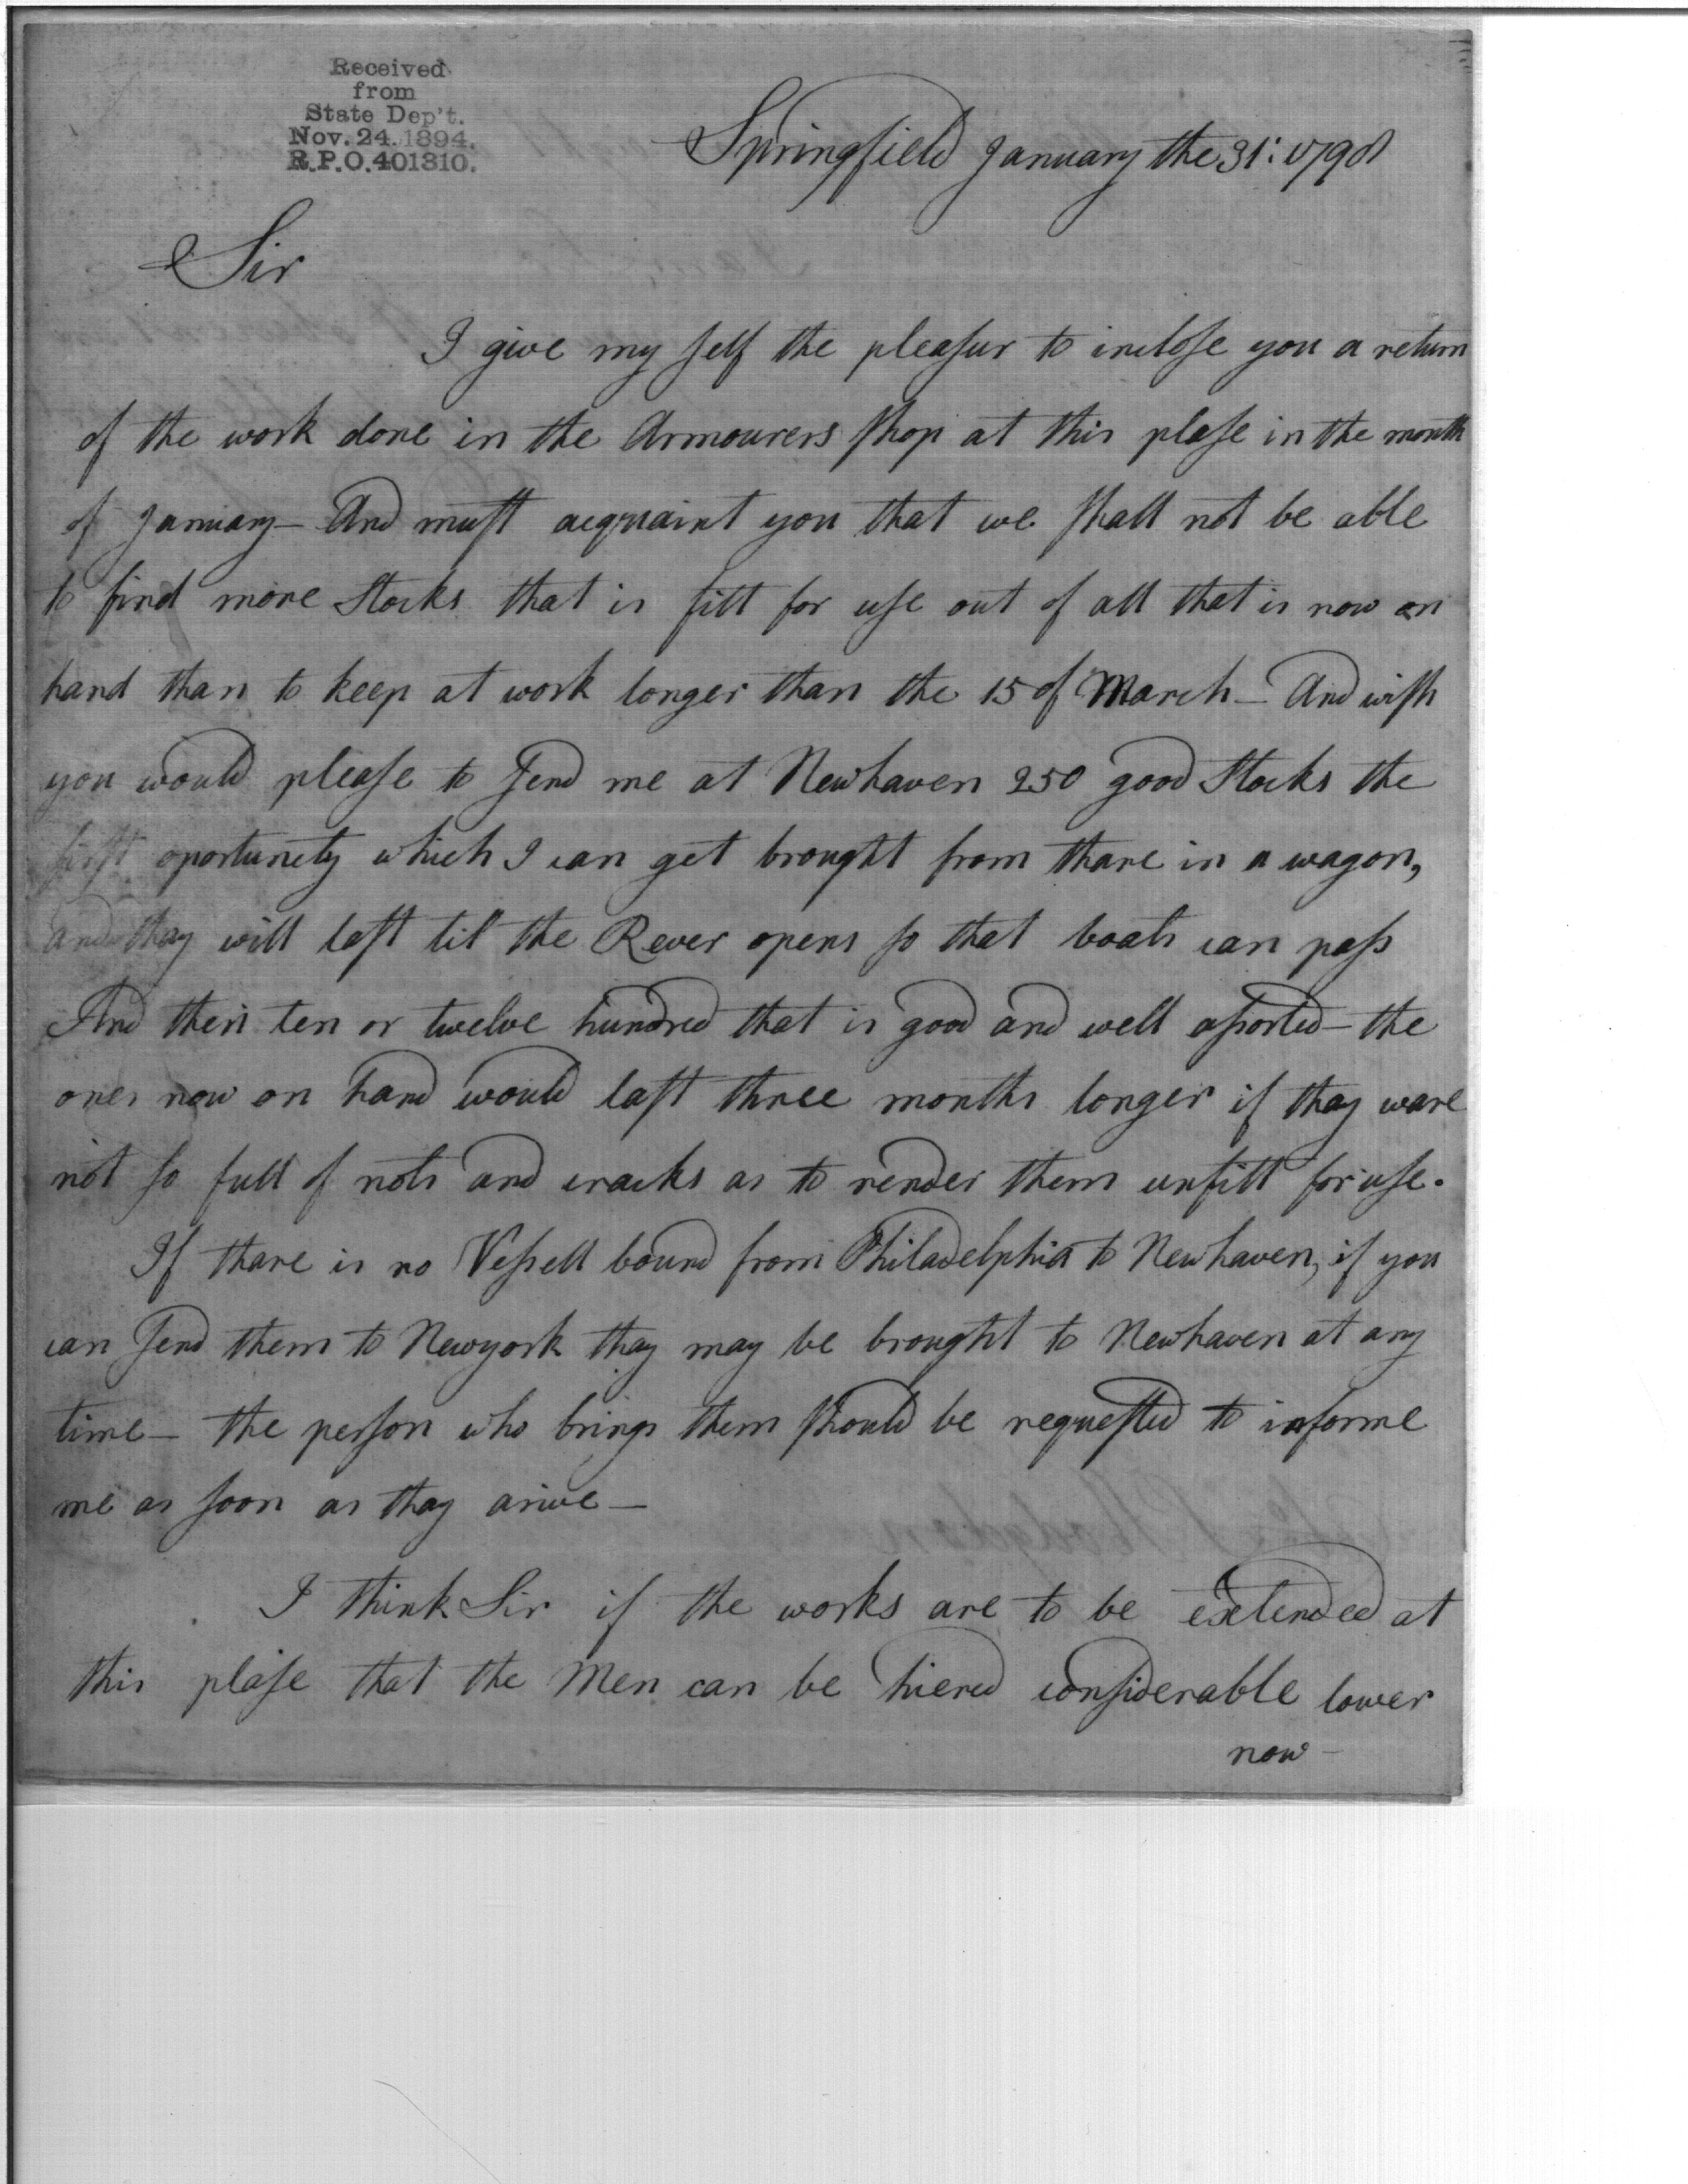 Received
from
State Dep't.
Nov. 24. 1894.
R.P.O. 401310.
Springfield January the 31: 1798
Sir
I give my self the pleasur to inclose you a return
of the work done in the Armourers shop at this plase in the month
of January — And must acquaint you that we shall not be able
to find more Stocks that is fitt for use out of all that is now on
hand than to keep at work longer than the 15 of March — And wish
you would please to send me at Newhaven 250 good Stocks the
first oportunety which I can get brought from thare in a wagon,
and thay will last til the Rever opens so that boats can pass
And then ten or twelve hundred that is good and well assorted — the
ones now on hand would last three months longer if thay ware
not so full of nots and cracks as to render them unfitt for use.
If thare is no Vessell bound from Philadelphia to Newhaven, if you
can send them to Newyork thay may be brought to Newhaven at any
time — the person who brings them should be requested to informe
me as soon as thay arive —
I think Sir if the works are to be extended at
this plase that the Men can be hiered considerable lower
now —